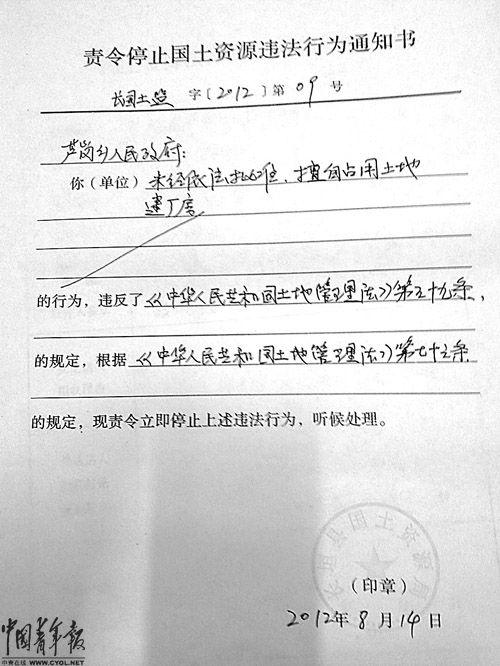 责令停止国土资源违法行为通知书
长国土监 字〔2012〕第 09 号
芦岗乡人民政府:
你（单位）未经依法批准、擅自占用土地
建厂房
的行为，违反了《中华人民共和国土地管理法》第五十九条，
的规定，根据《中华人民共和国土地管理法》第七十六条
的规定，现责令立即停止上述违法行为，听候处理。
长垣县国土资源局
（印章）
2012年 8 月 14 日
中国青年报
中青在线 WWW.CYOL.NET